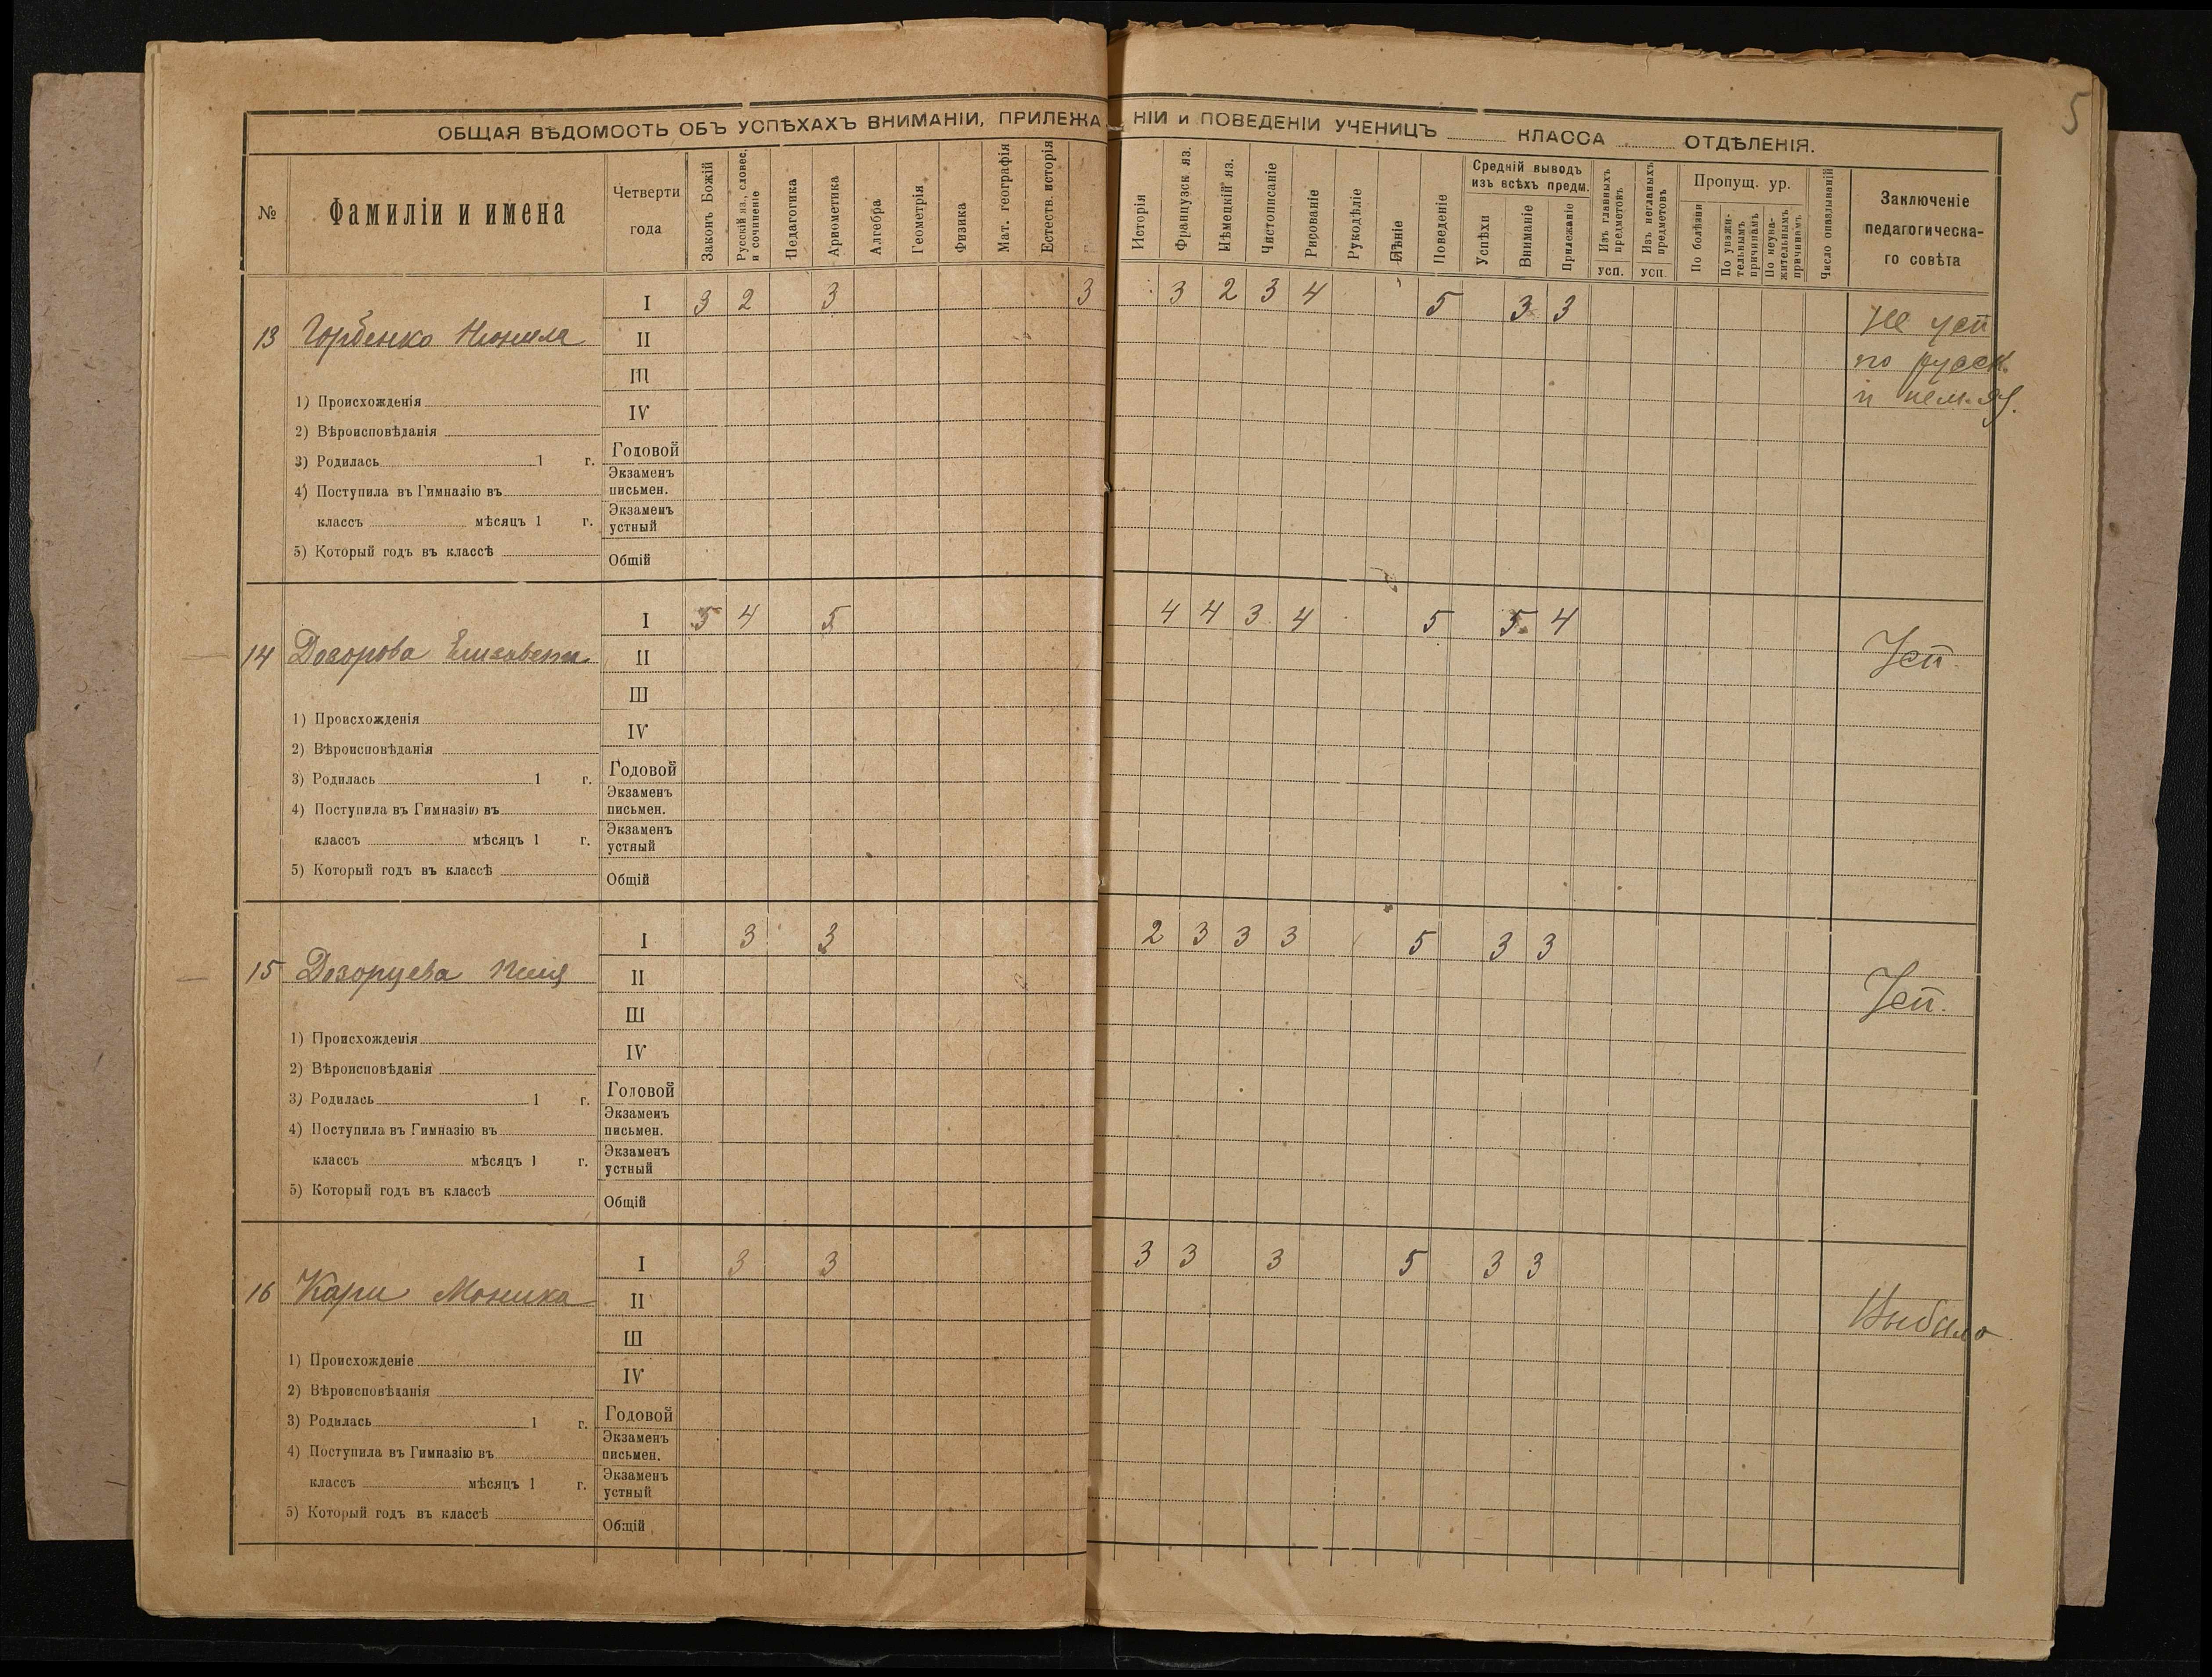 5
ОБЩАЯ ВѢДОМОСТЬ ОБЪ УСПѢХАХЪ ВНИМАНІИ, ПРИЛЕЖАНІИ и ПОВЕДЕНІИ УЧЕНИЦЪ ........ КЛАССА ........ ОТДѢЛЕНІЯ.
№
Фамиліи и имена
Четверти
года
Законъ Божій
Русскій яз., словес.
и сочиненіе
Педагогика
Ариѳметика
Алгебра
Геометрія
Физика
Мат. географія
Естеств. исторія
Исторія
Французск яз.
Нѣмецкій яз.
Чистописаніе
Рисованіе
Рукодѣліе
Пѣніе
Поведеніе
Средній выводъ
изъ всѣхъ предм.
Успѣхи
Вниманіе
Прилежаніе
Изъ главныхъ
предметовъ
усп.
Изъ неглавныхъ
предметовъ
усп.
Пропущ. ур.
По болѣзни
По уважи-
тельнымъ
причинамъ
По неува-
жительнымъ
причинамъ
Число опаздываній
Заключеніе
педагогическа-
го совѣта
13 Горбенко
I 3 2 3 3 3 2 3 4 5 3 3
Не усп
по русск.
и нем. яз.
II
III
IV
Годовой
Экзаменъ
письмен.
Экзаменъ
устный
Общій
1) Происхожденія
2) Вѣроисповѣданія
3) Родилась 1 г.
4) Поступила въ Гимназію въ
классъ мѣсяцъ 1 г.
5) Который годъ въ классѣ
14 Елизавета
I 5 4 5 4 4 3 4 5 5 4
Усп.
II
III
IV
Годовой
Экзаменъ
письмен.
Экзаменъ
устный
Общій
1) Происхожденія
2) Вѣроисповѣданія
3) Родилась 1 г.
4) Поступила въ Гимназію въ
классъ мѣсяцъ 1 г.
5) Который годъ въ классѣ
15 Дозорцева
I 3 3 2 3 3 3 5 3 3
Усп.
II
III
IV
Годовой
Экзаменъ
письмен.
Экзаменъ
устный
Общій
1) Происхожденія
2) Вѣроисповѣданія
3) Родилась 1 г.
4) Поступила въ Гимназію въ
классъ мѣсяцъ 1 г.
5) Который годъ въ классѣ
16 Кари Моника
I 3 3 3 3 3 5 3 3
Выбыла
II
III
IV
Годовой
Экзаменъ
письмен.
Экзаменъ
устный
Общій
1) Происхожденіе
2) Вѣроисповѣданія
3) Родилась 1 г.
4) Поступила въ Гимназію въ
классъ мѣсяцъ 1 г.
5) Который годъ въ классѣ